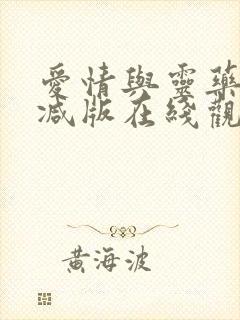 愛情與靈藥
減版在綫觀
黃海波